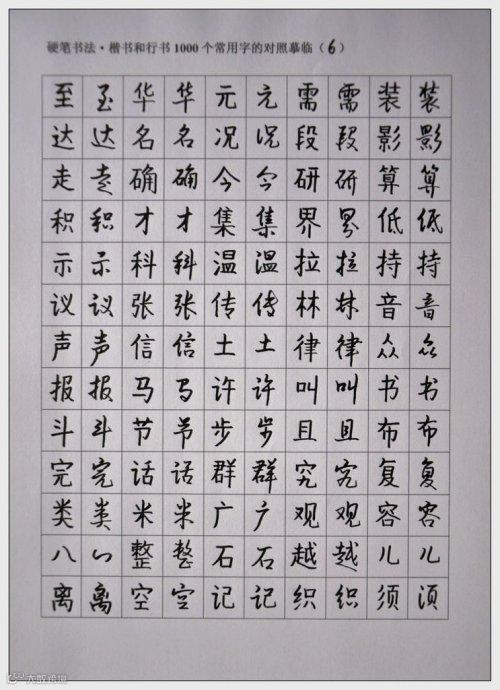 硬笔书法·楷书和行书1000个常用字的对照摹临（6）
至至华华元元需需装装
达达名名况况段段影影
走走确确今今研研算算
积积才才集集界界低低
示示科科温温拉拉持持
议议张张传传林林音音
声声信信土土律律众众
报报马马许许叫叫书书
斗斗节节步步且且布布
完完话话群群究究复复
类类米米广广观观容容
八八整整石石越越儿儿
离离空空记记织织须须
大数跨境